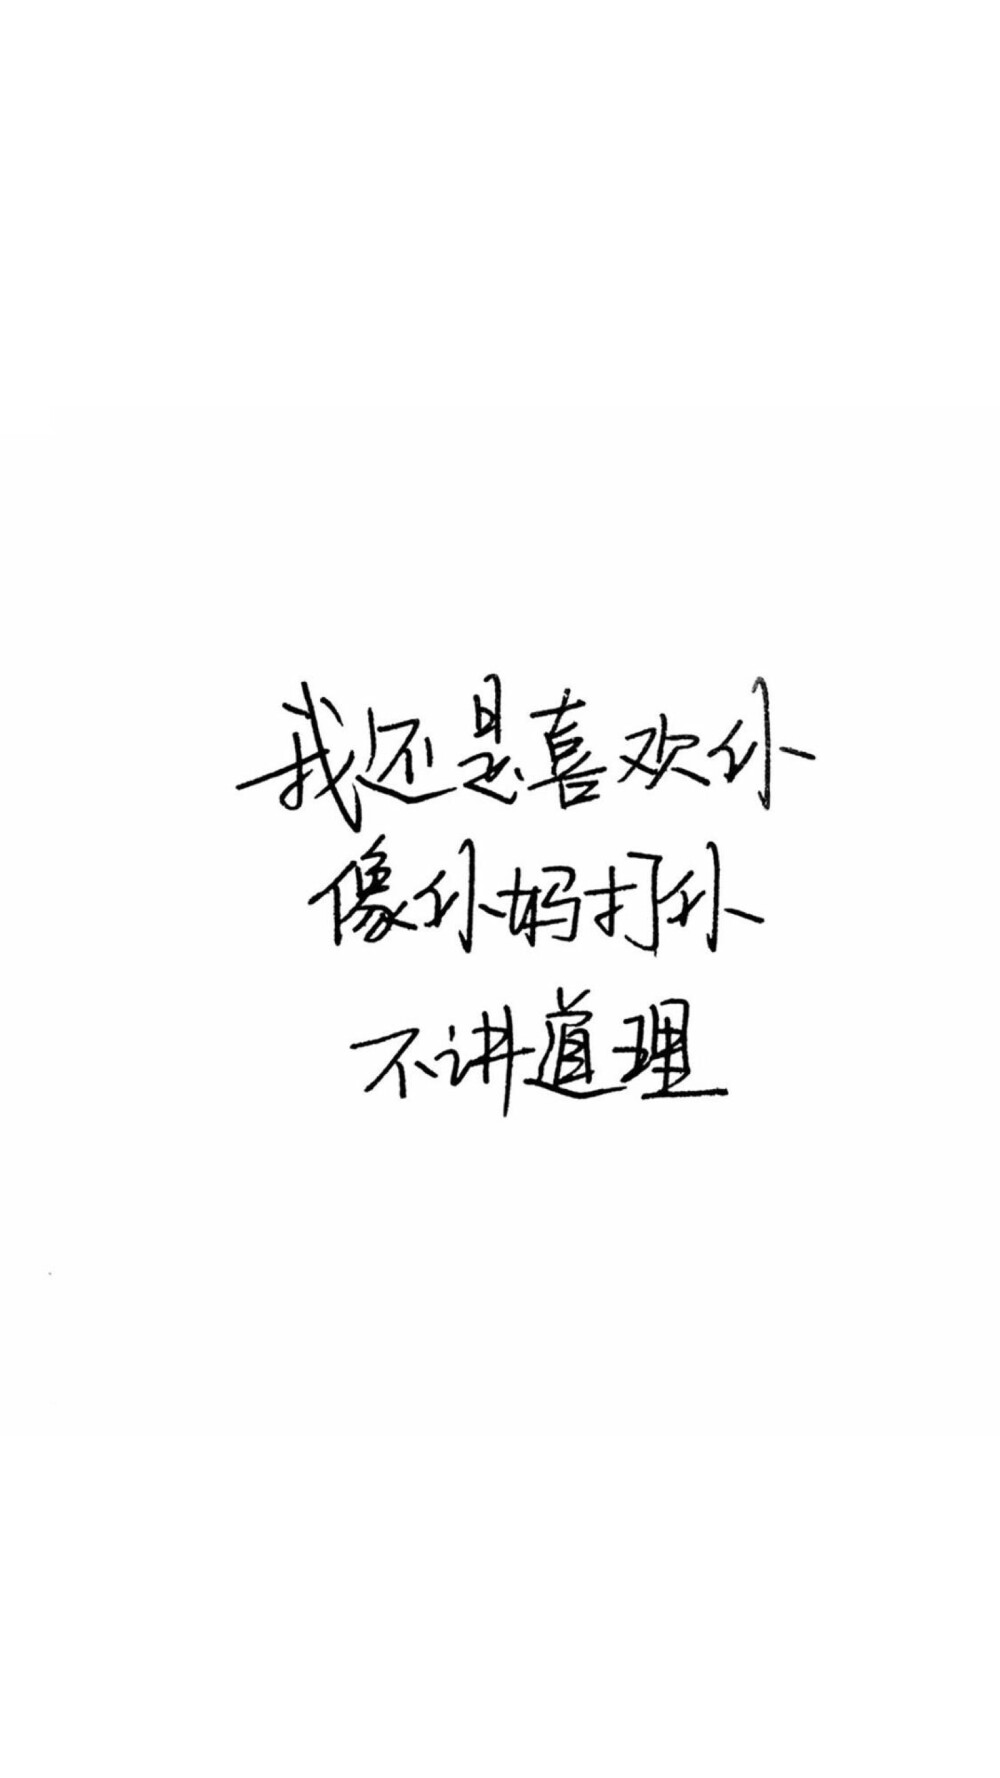 我还是喜欢你
像你妈打你
不讲道理